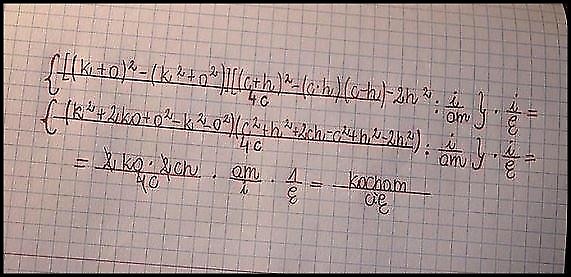 { [(k+o)² - (k²+o²)][(c+h)² - (c-h)(c-h) - 2h² / 4c : i/am } · i/ę =
{ (k²+2ko+o²-k²-o²)(c²+h²+2ch-c²+h²-2h²) / 4c : i/am } · i/ę =
= 2ko·2ch / 4c · am/i · 1/ę = kocham / cię